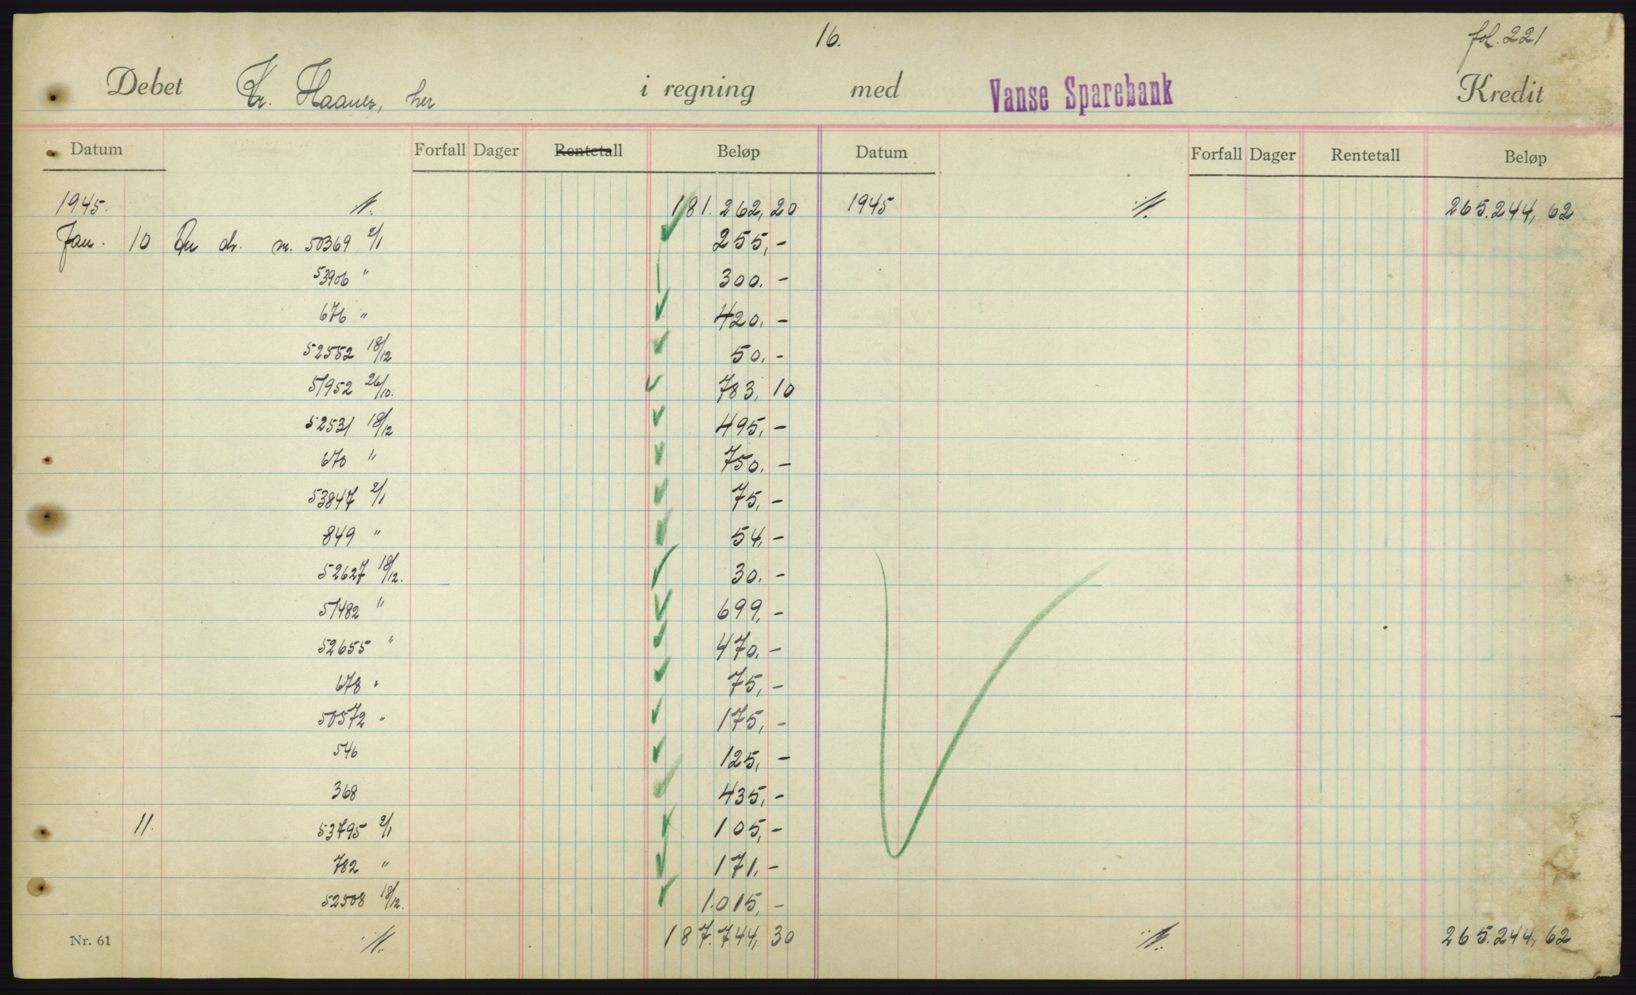 16.
fol. 221
Debet Kr. Haanes, her i regning med Vanse Sparebank Kredit
Datum Forfall Dager Rentetall Beløp Datum Forfall Dager Rentetall Beløp
1945. //. 181.262,20 1945 //. 265.244,62
Jan. 10 dr. nr. 50369 2/1 255,-
53906 " 300.-
676 " 420.-
52552 18/12 50.-
51952 26/10. 783,10
52531 18/12 495.-
670 " 750.-
53847 2/1 75,-
849 " 54,-
52627 18/12. 30.-
51482 " 699,-
52655 " 470.-
678 " 75,-
50572 " 175,-
546 125,-
368 435,-
11. 53795 2/1 105,-
782 " 171.-
52508 18/12. 1.015,-
Nr. 61 //. 187.744,30 //. 265.244,62